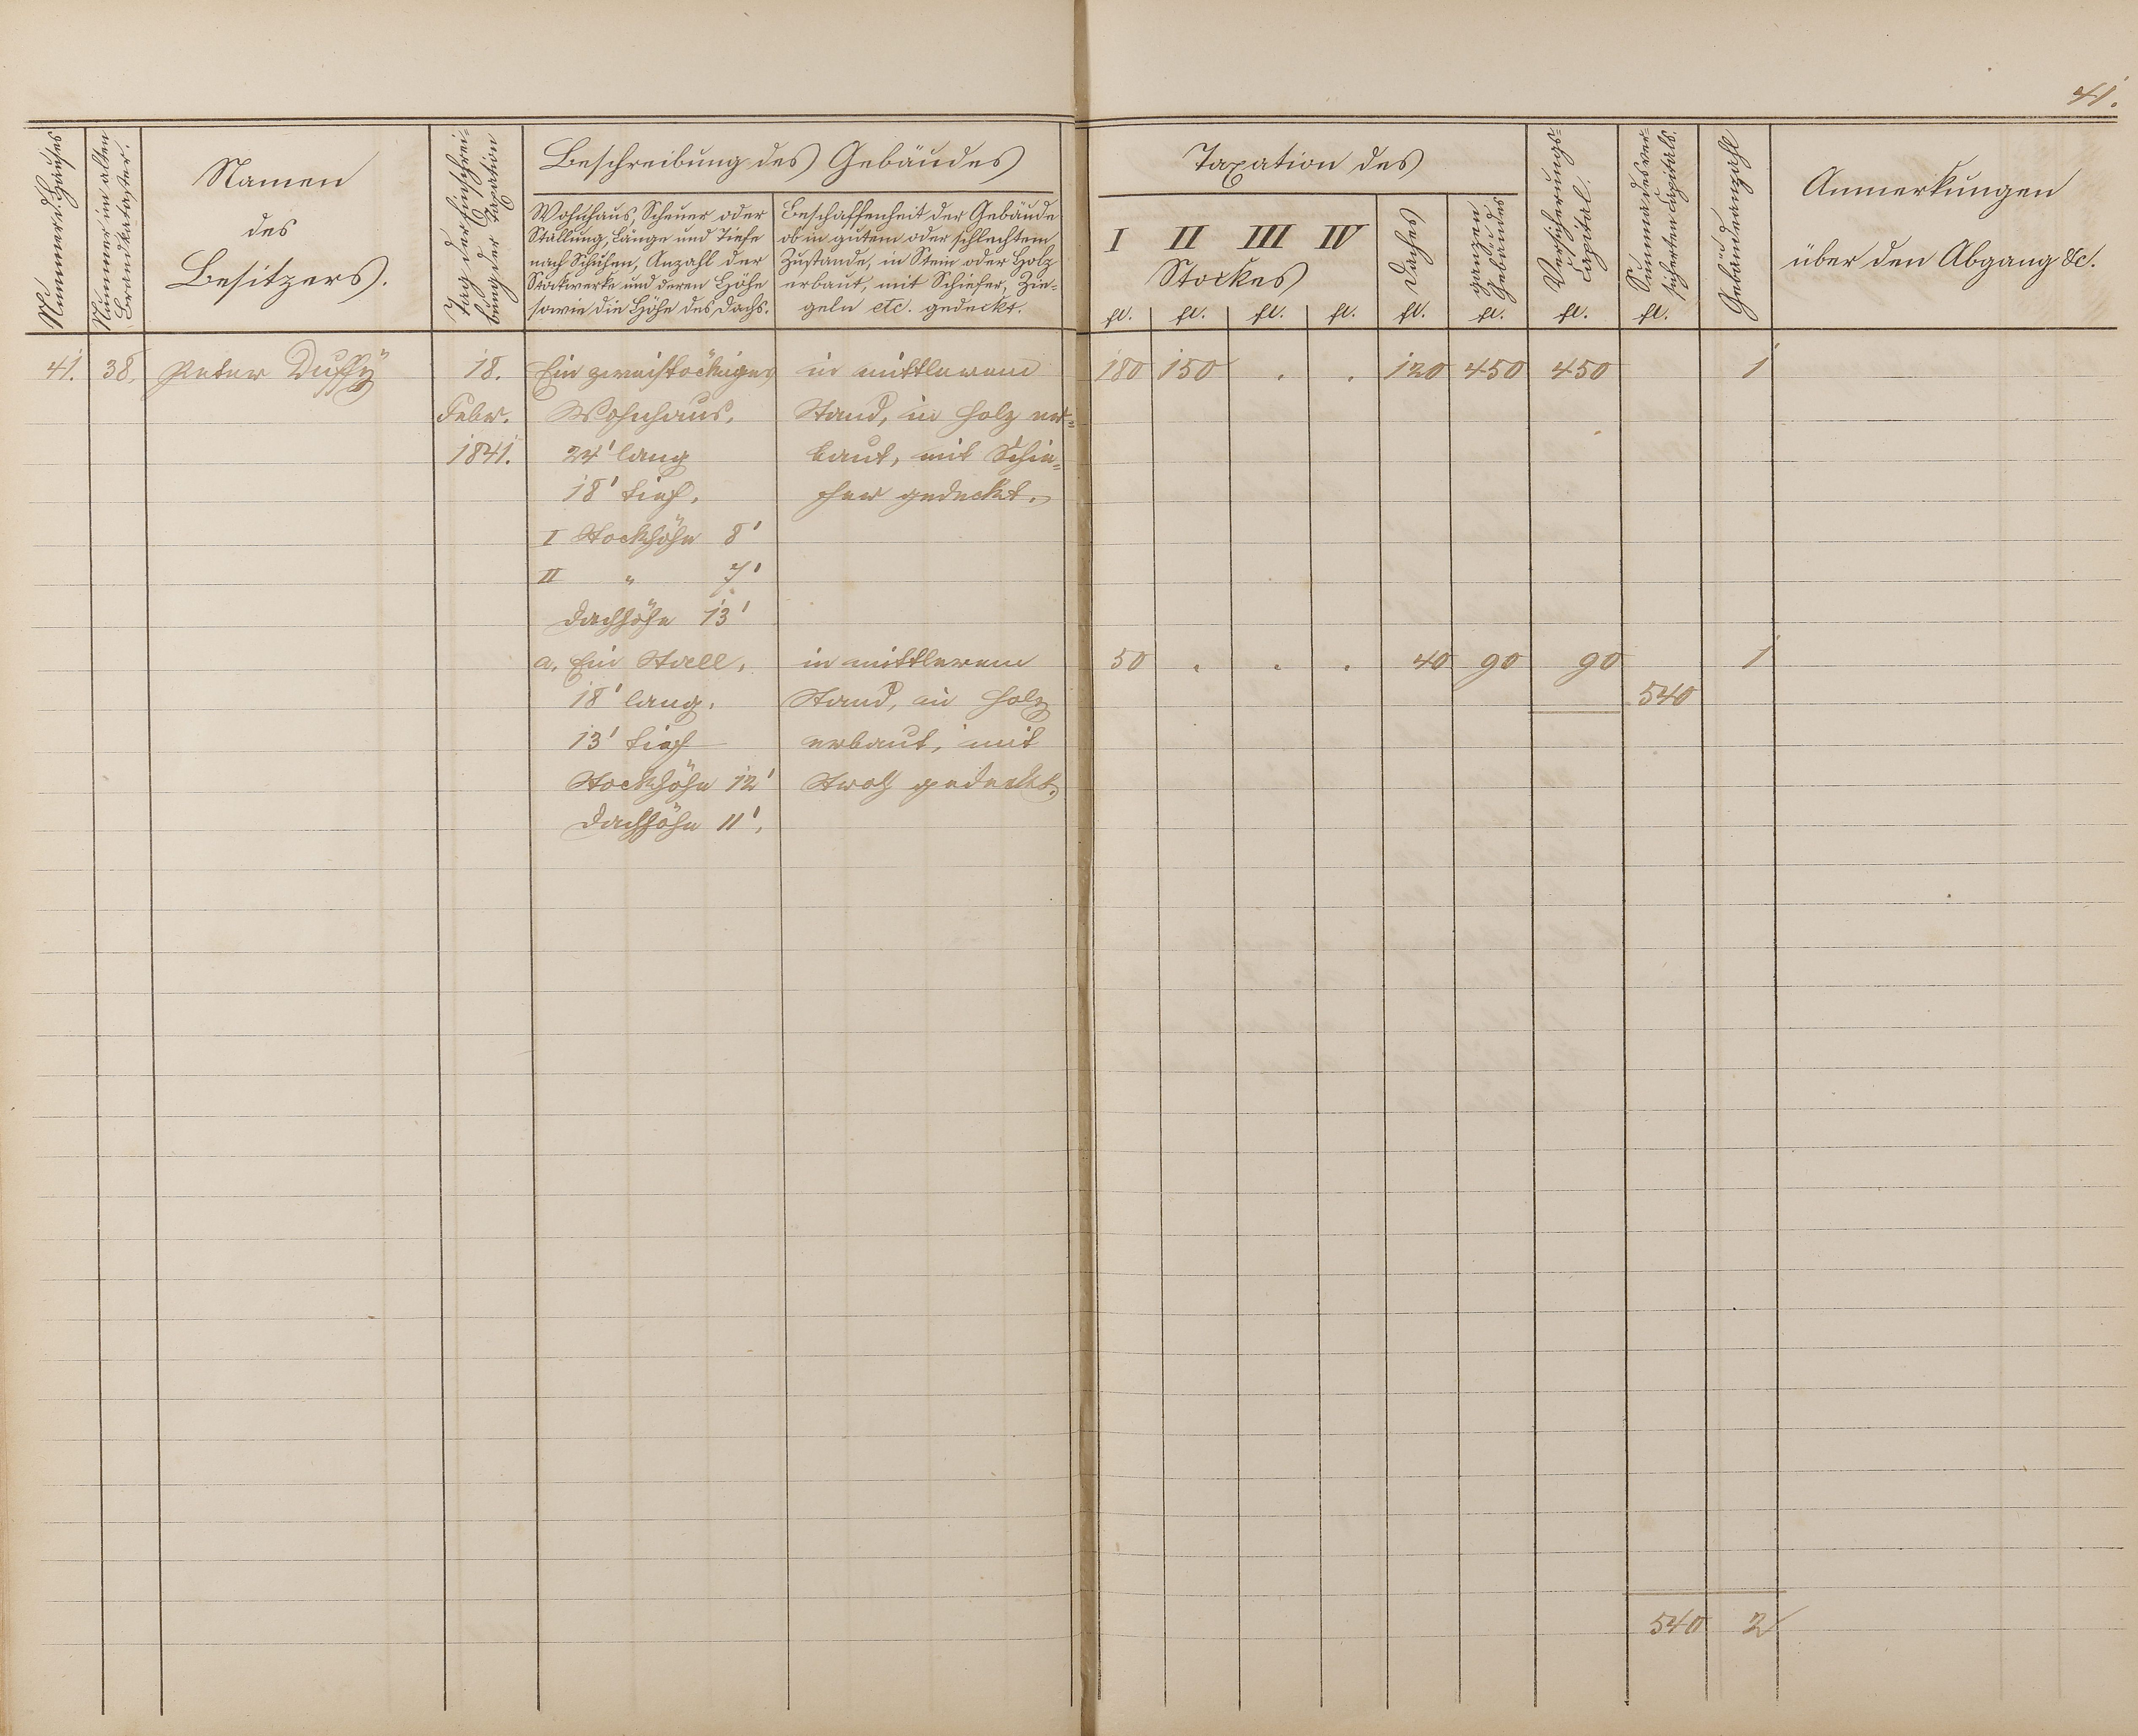 41.
Nummer d. Hauses
Nummer im alten
Brandkataster.
Namen
des
Besitzers.
Tag der Einschrei-
bung der Taxation
Beschreibung des Gebäudes
Wohnhaus, Scheuer oder
Stallung, Länge und Tiefe
nach Schuhen, Anzahl der
Stockwerke und deren Höhe
sowie die Höhe des Dachs.
Beschaffenheit der Gebäude
ob in gutem oder schlechtem
Zustande, in Stein oder Holz
erbaut, mit Schiefer, Zie-
geln etc. gedeckt.
Taxation des
I II III IV
Stockes
Daches
ganzen
Gebäudes
Versicherungs-
Capital.
Summa des ver-
sicherten Capitals.
Gebäudeanzahl
Anmerkungen
über den Abgang &c.
fl. fl. fl. fl. fl. fl. fl. fl.
41. 38. Peter Duffÿ 18. Ein zweistöckiges in mittlerem 180 150 . . 120 450 450 1
Febr. Wohnhaus. Stand, in Holz er=
1841. 24' lang baut, mit Schie=
18' tief. fer gedeckt.
I Stockhöhe 8'
II " 7'
Dachhöhe 13'
a. Ein Stall. in mittlerem 50 . . . 40 90 90 1
18' lang. Stand, in Holz 540
13' tief erbaut, mit
Stockhöhe 12' Stroh gedeckt.
Dachhöhe 11'.
540 2